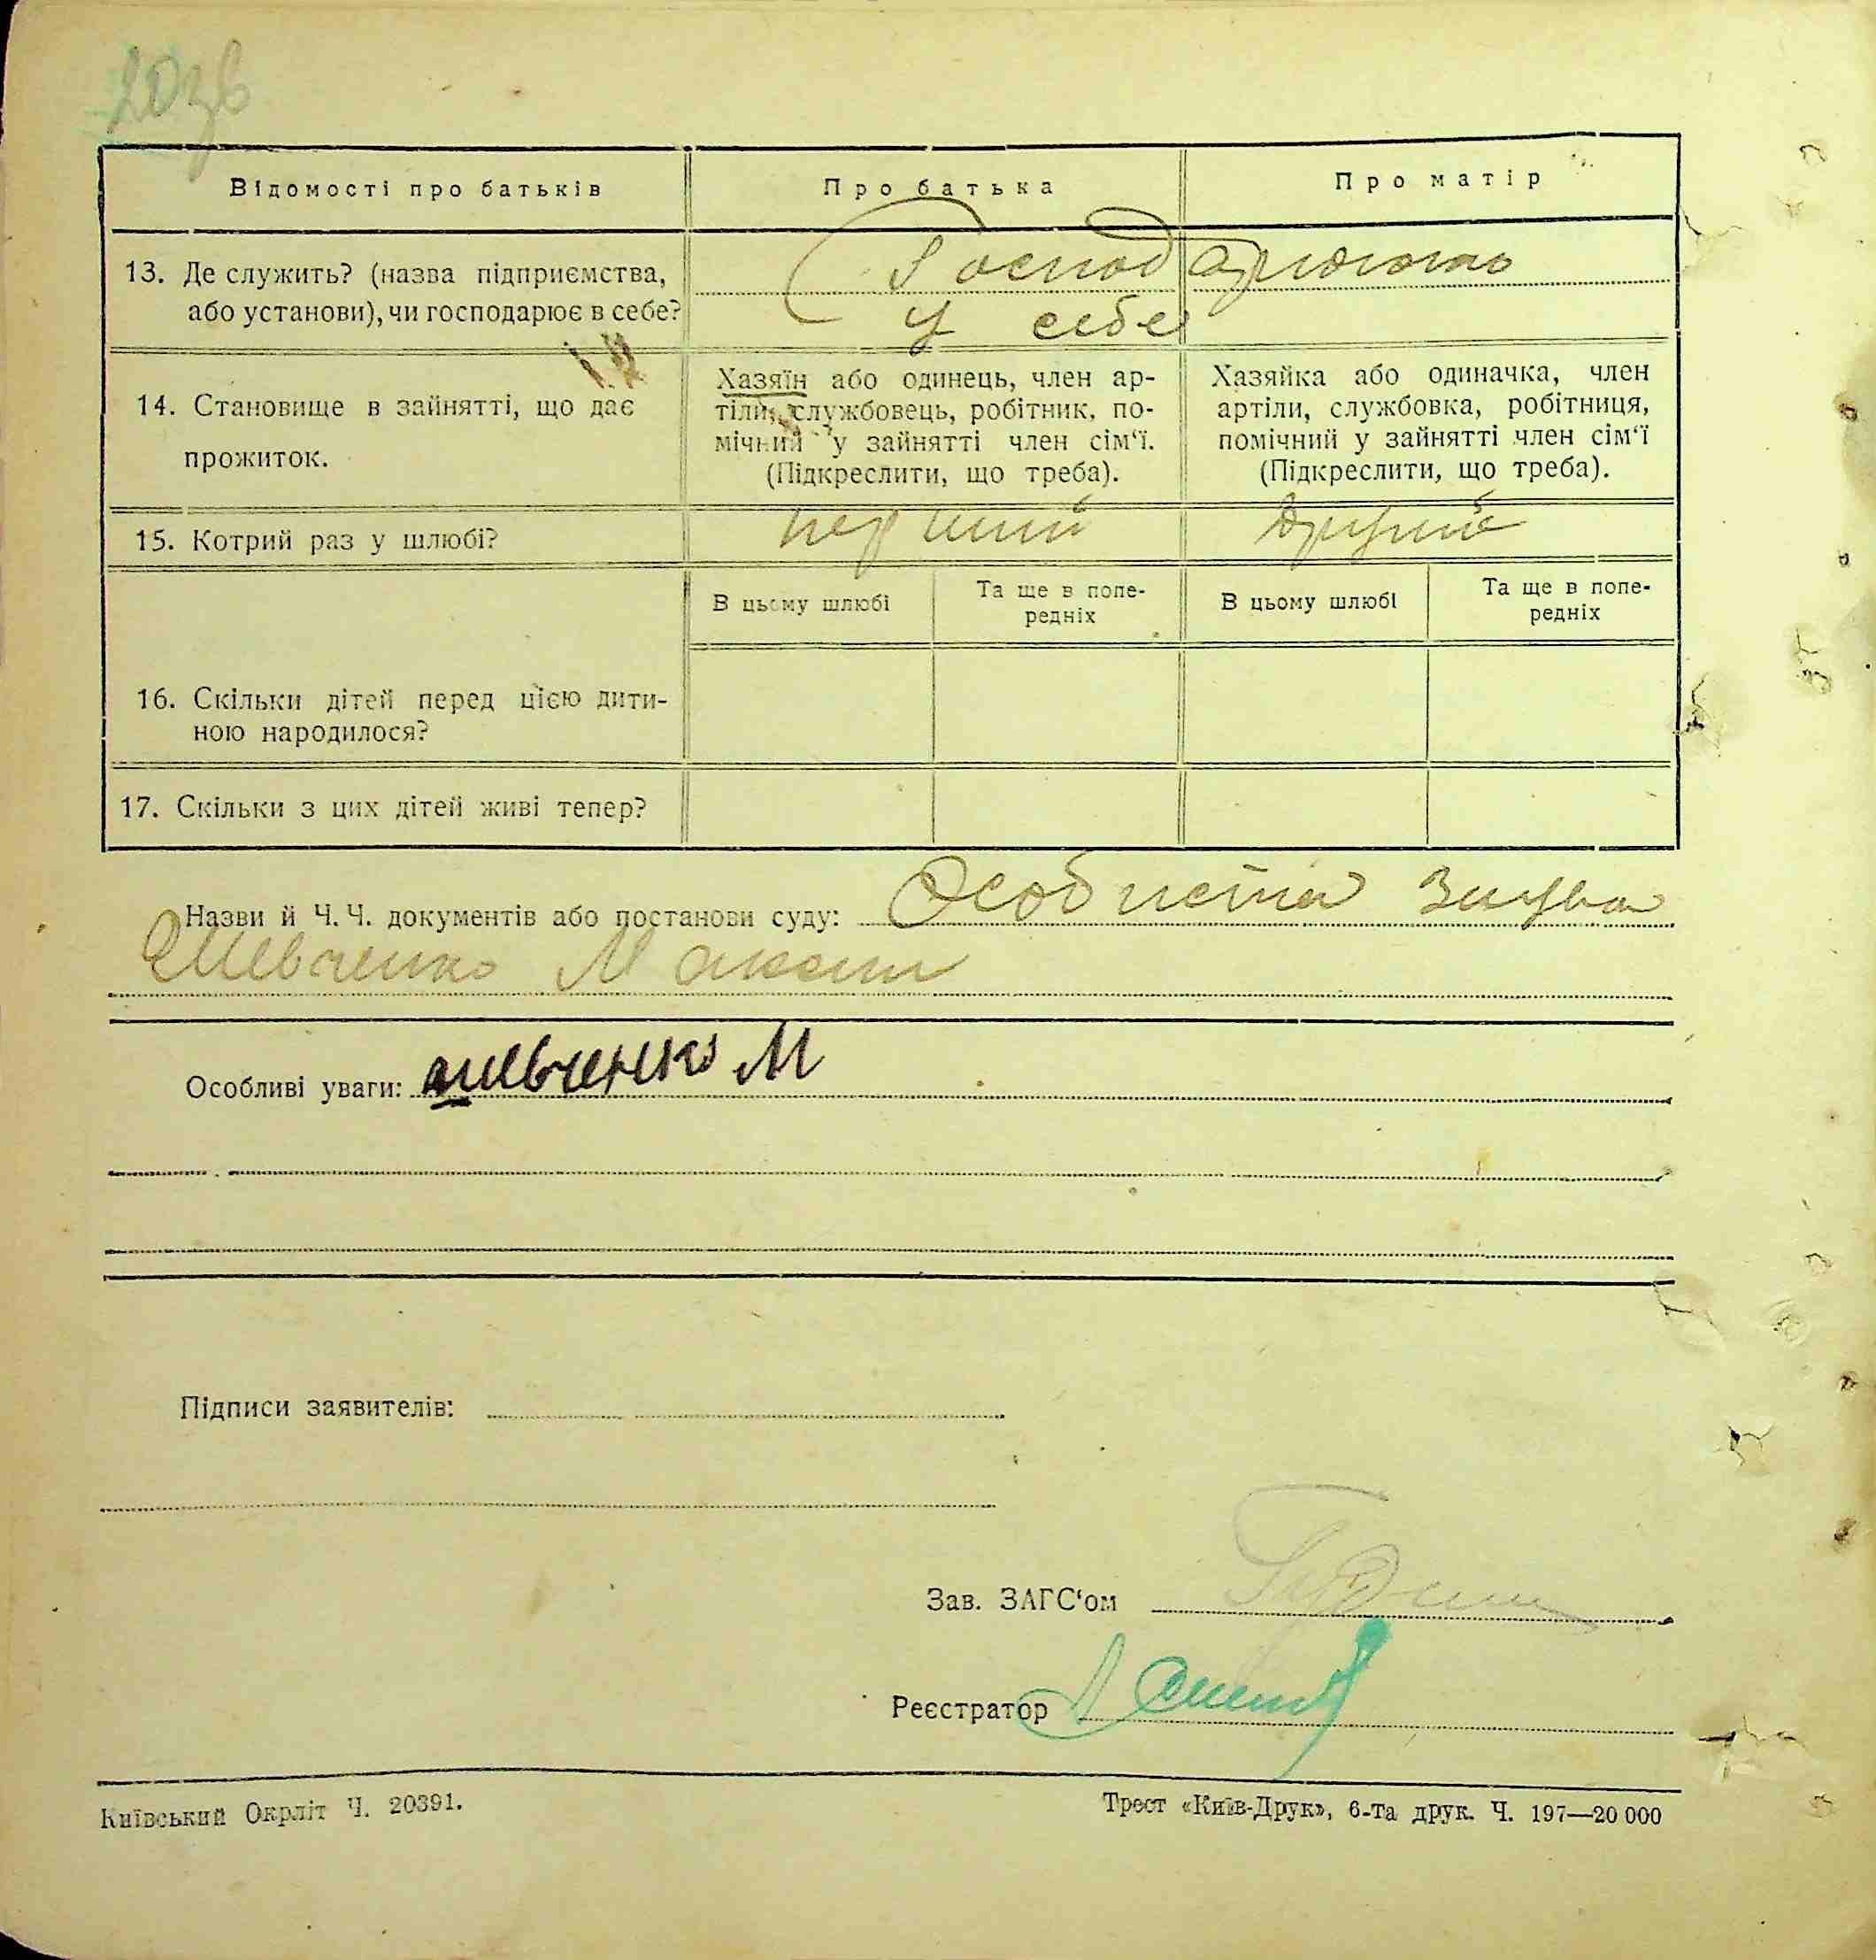 20зв
Відомості про батьків
Про батька
Про матір
13. Де служить? (назва підприємства,
або установи), чи господарює в себе?
Господарюють
у себе
14. Становище в зайнятті, що дає
прожиток.
Хазяїн або одинець, член ар-
тілі, службовець, робітник, по-
мічний у зайнятті член сім‘ї.
(Підкреслити, що треба).
Хазяйка або одиначка, член
артіли, службовка, робітниця,
помічний у зайнятті член сім‘ї
(Підкреслити, що треба).
15. Котрий раз у шлюбі?
перший
другий
В цьому шлюбі
Та ще в попе-
редніх
В цьому шлюбі
Та ще в попе-
редніх
16. Скільки дітей перед цією дити-
ною народилося?
17. Скільки з цих дітей живі тепер?
Назви й Ч.Ч. документів або постанови суду: Особиста заява
Шевченко Максим
Особливі уваги: шевченко М
Підписи заявителів:
Зав. ЗАГС‘ом
Реєстратор
Київський Окрліт Ч. 20391.
Трест «Київ-Друк», 6-та друк. Ч. 197—20 000